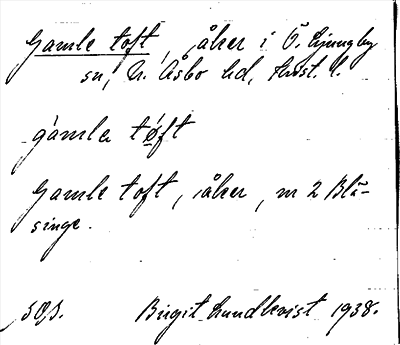 Gamle toft, åker i Ö. Ljungby
sn, N. Åsbo hd, Krist. l.
gámla tǿft
Gamle toft, åker, m 2 Blä-
singe.
SOS. Birgit Lundkvist 1938.